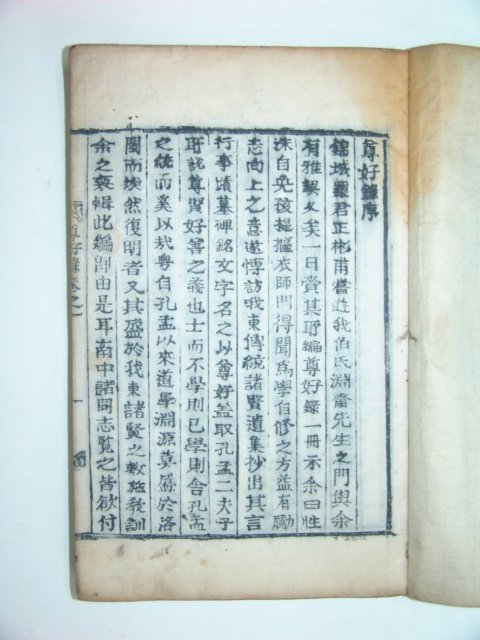 尊好錄序
錦城羅君正彬甫嘗遊我伯氏淵齋先生之門與余
有雅契久矣一日賫其所編尊好錄一冊示余曰性
洙自免孩提摳衣師門得聞爲學自修之方益有勵
志向上之意遂博訪我東傳統諸賢遺集抄出其言
行事蹟墓碑銘文字名之以尊好盖取孔孟二夫子
所謂尊賢好善之義也士而不學則已學則舍孔孟
之統而奚以哉粤自孔孟以來道學淵源莫盛於洛
閩而煥然復明者又其盛於我東諸賢之敷施敎訓
余之裒輯此編卽由是耳南中諸同志覧之皆欲付
尊好錄序之一